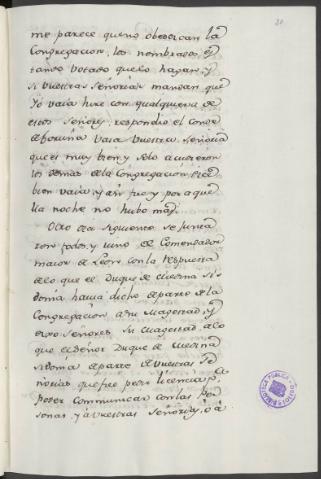 20
me parece que no obedezcan la
Congregacion, los nombrados, es
tando votado que lo hagan, y
si vuestras señorias mandan que
Yo vaia hire con qualquiera de
estos Señores; respondio el Conde
de Coruña vaia vuestra Señoria
que es muy bien, y solo acudieron
los demas de la Congregacion,
bien vaia, y asi fue y por aque
lla noche no hubo mas.
Otro dia siguiente se junta
ron todos, y vino el Comendador
maior de Leon con la respuesta
a lo que el Duque de Medina Si
donia havia dicho de parte de la
Congregacion a su Magestad, y
dixo Señores Su Magestad, a lo
que el Señor Duque de Medina
Sidonia de parte de vuestras Se
ñorias que fue pedir licencia para
poder communicar con las Per
sonas, y a vuestras Señorias, o a